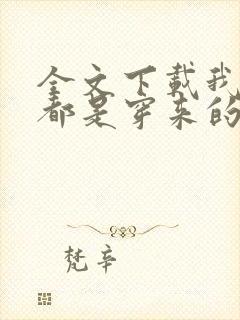 全文下载我
都是穿来的
梵辛